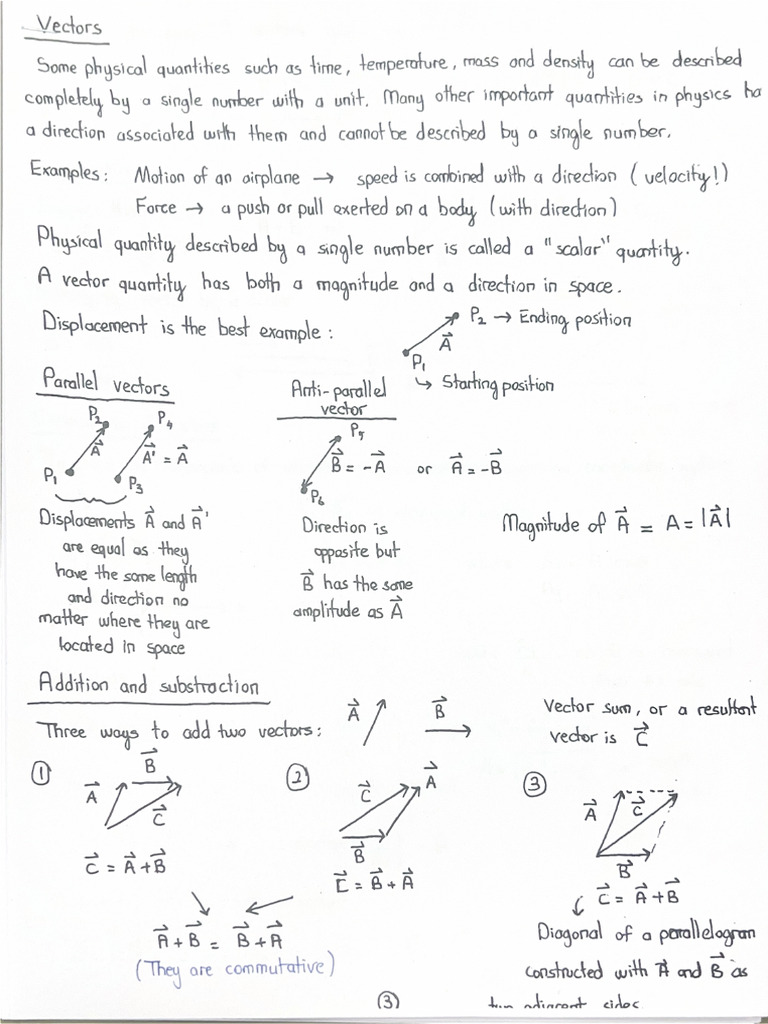 Vectors
Some physical quantities such as time, temperature, mass and density can be described
completely by a single number with a unit. Many other important quantities in physics ha
a direction associated with them and cannot be described by a single number.
Examples: Motion of an airplane → speed is combined with a direction (velocity!)
Force → a push or pull exerted on a body (with direction)
Physical quantity described by a single number is called a "scalar" quantity.
A vector quantity has both a magnitude and a direction in space.
Displacement is the best example:
P₂ → Ending position
A⃗
P₁
↳ Starting position
Parallel vectors
P₂
P₄
A⃗
A⃗' = A⃗
P₁
P₃
Displacements A⃗ and A⃗'
are equal as they
have the same length
and direction no
matter where they are
located in space
Anti-parallel
vector
P₅
B⃗ = -A⃗ or A⃗ = -B⃗
P₆
Direction is
opposite but
B⃗ has the same
amplitude as A⃗
Magnitude of A⃗ = A = |A⃗|
Addition and substraction
Three ways to add two vectors:
A⃗
B⃗
Vector sum, or a resultant
vector is C⃗
①
B⃗
A⃗
C⃗
C⃗ = A⃗ + B⃗
②
C⃗
A⃗
B⃗
C⃗ = B⃗ + A⃗
A⃗ + B⃗ = B⃗ + A⃗
(They are commutative)
③
A⃗
C⃗
B⃗
C⃗ = A⃗ + B⃗
Diagonal of a parallelogram
constructed with A⃗ and B⃗ as
two adjacent sides
③